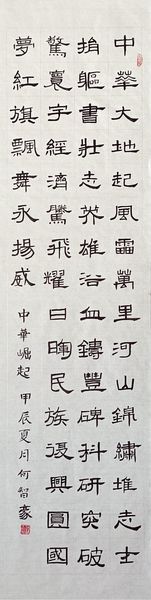 中華大地起風雷萬里河山錦繡堆志士
捐軀書壯志英雄浴血鑄豐碑科研突破
驚寰宇經濟騰飛耀日民族復興圓國
夢紅旗飄舞永揚威
中華崛起 甲辰夏月何智豪